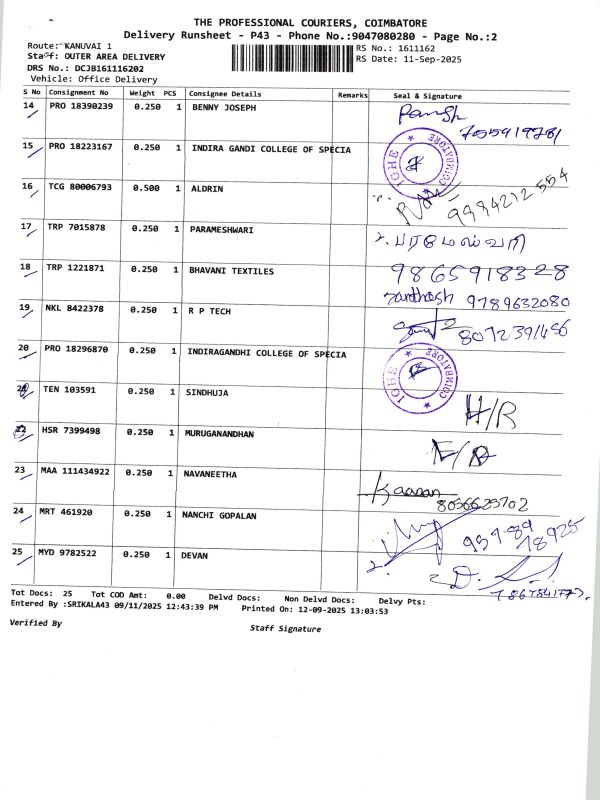 THE PROFESSIONAL COURIERS, COIMBATORE
Delivery Runsheet - P43 - Phone No.:9047080280 - Page No.:2
Route: KANUVAI 1
RS No.: 1611162
Staff: OUTER AREA DELIVERY
RS Date: 11-Sep-2025
DRS No.: DCJB161116202
Vehicle: Office Delivery
S No Consignment No Weight PCS Consignee Details Remarks Seal & Signature
14 PRO 18390239 0.250 1 BENNY JOSEPH
755919781
15 PRO 18223167 0.250 1 INDIRA GANDI COLLEGE OF SPECIA
IGHE COIMBATORE
16 TCG 80006793 0.500 1 ALDRIN
9994212554
17 TRP 7015878 0.250 1 PARAMESHWARI பரமேஸ்வரி
18 TRP 1221871 0.250 1 BHAVANI TEXTILES 9865918328
9789632080
19 NKL 8422378 0.250 1 R P TECH
20 PRO 18296870 0.250 1 INDIRAGANDHI COLLEGE OF SPECIA
IGHE COIMBATORE
21 TEN 103591 0.250 1 SINDHUJA H/R
22 HSR 7399498 0.250 1 MURUGANANDHAN
23 MAA 111434922 0.250 1 NAVANEETHA
8056625702
24 MRT 461920 0.250 1 NANCHI GOPALAN
95989 18925
25 MYD 9782522 0.250 1 DEVAN
Tot Docs: 25 Tot COD Amt: 0.00 Delvd Docs: Non Delvd Docs: Delvy Pts:
Entered By :SRIKALA43 09/11/2025 12:43:39 PM Printed On: 12-09-2025 13:03:53
Verified By
Staff Signature